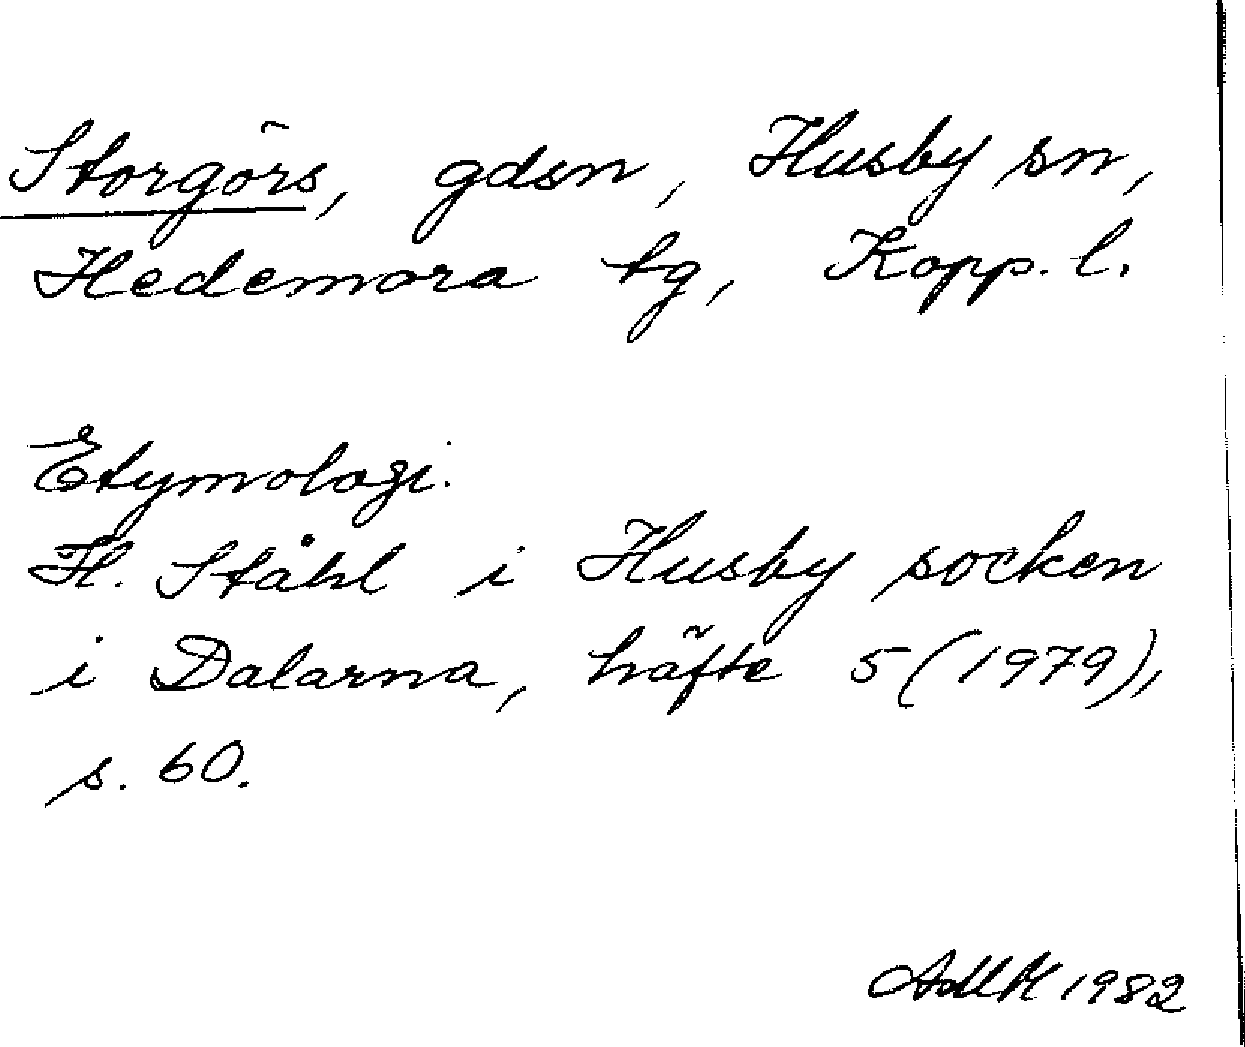 Storgörs, gdsn, Husby sn,
Hedemora tg, Kopp. l.
Etymologi.
H. Ståhl i Husby socken
i Dalarna, häfte 5 (1979),
s. 60.
1982